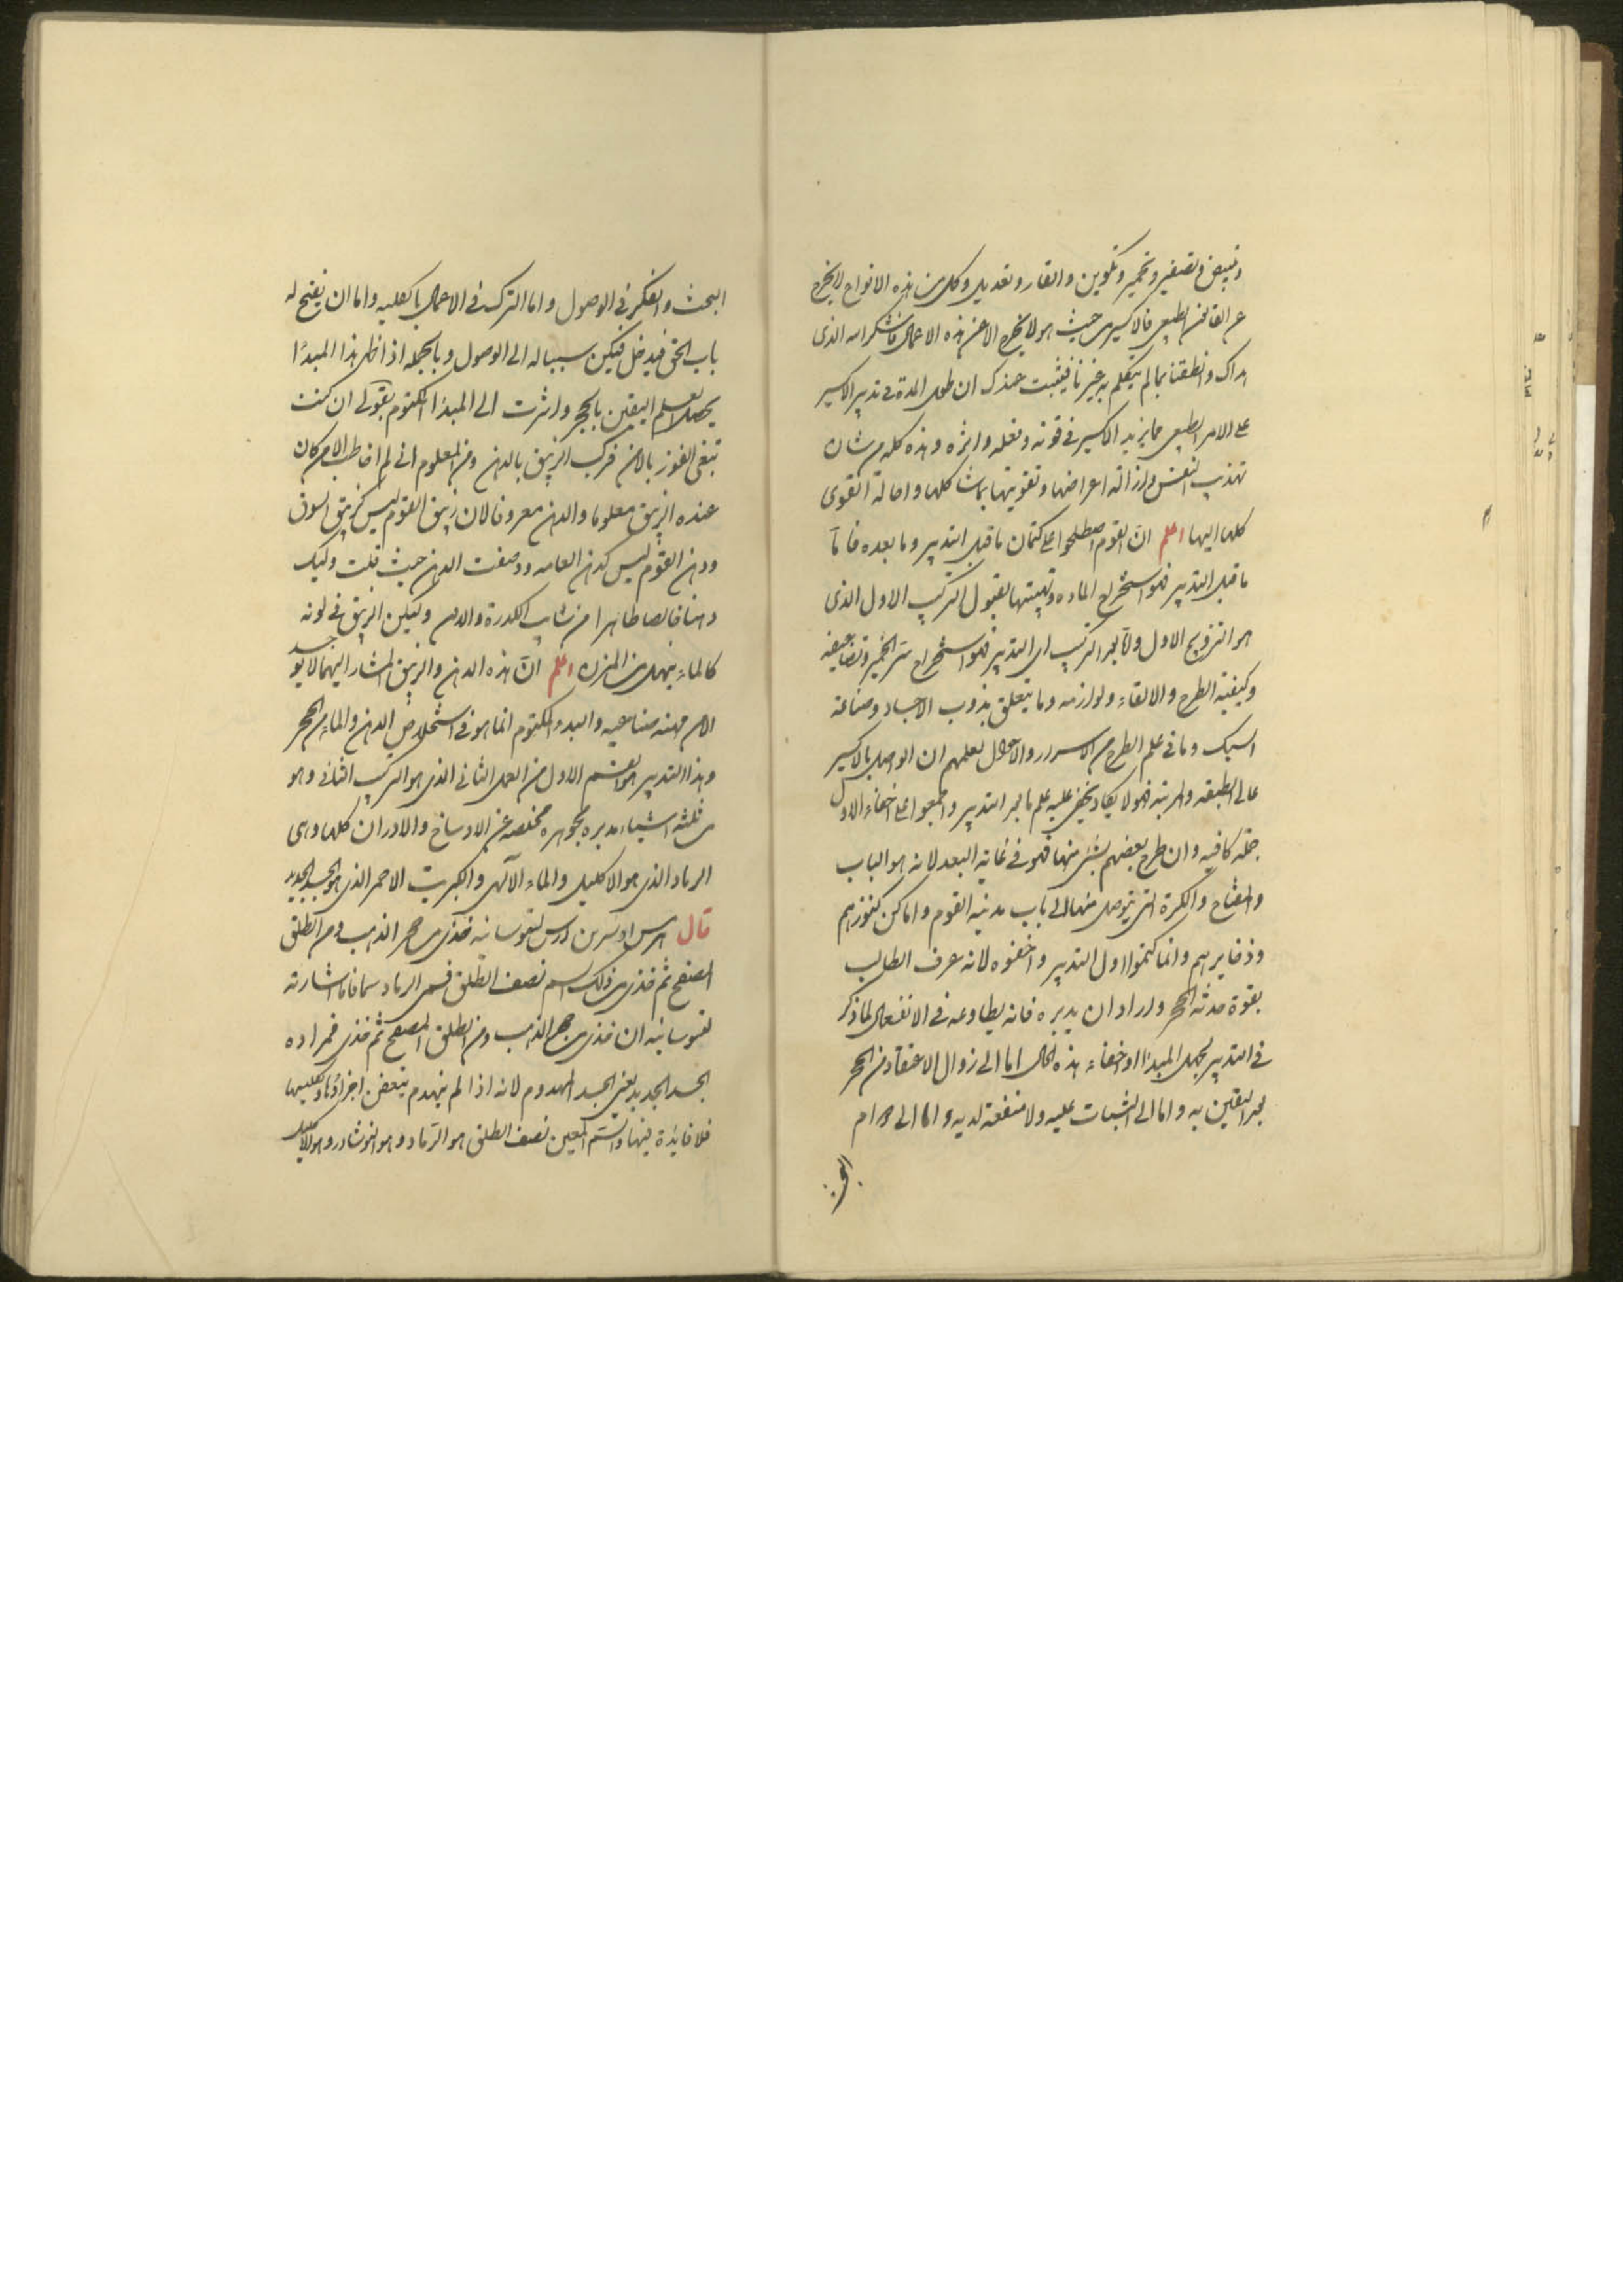 وتبييض وتصفير وتحمير وتكوين والقاء وتعديل وكل من هذه الانواع لا يخرج
عن القانون الطبيعى فالاكسير من حيث هو لا يخرج الا عن هذه الاعمال فاشكر الله الذى
هداك وانطقنا بما لم يتكلم به غيرنا فيثبت عندك ان طول المدة فى تدبير الاكسير
على الامر الطبيعى مما يزيد الاكسير فى قوته وفعله واثره وهذه كله من شان
تهذيب النفس وازالة اعراضها وتقويتها بما شاكلها واحالة القوى
كلها اليها اعلم ان القوم اصطلحوا على كتمان ما قبل التدبير وما بعده فاما
ما قبل التدبير فهو استخراج الماده وتهيئتها لقبول التركيب الاول الذى
هو التزويج الاول واما بعد التركيب اى التدبير فهو استخراج سر الخمير وتضاعيفه
وكيفية الطرح والالقاء ولوازمه وما يتعلق بذوب الاجساد وصناعة
السبك وما فى علم الطرح من الاسرار والاحوال لعلمهم ان الواصل بالاكسير
عالى الطبقه والمرتبه فهو لا يكاد يخفى عليه علم ما بعد التدبير واجمعوا على اخفاء الاول
جملة كافيه وان طرح بعضهم بشئ منها فهو فى غاية البعد لانه هو الباب
والمفتاح والكرة التى يتوصل منها الى باب مدينة القوم واماكن كنوزهم
وذخايرهم وانما كتموا اول التدبير واخفوه لانه عرف الطالب
بقوة حدثه الحجر واراد ان يدبره فانه يطاوعه فى الانفعال لما ذكر
فى التدبير لجهل المبدا او اخفاء هذه الحال اما الى زوال الاعتقاد من الحجر
بعد اليقين به واما الى الثبات عليه ولا منفعة لديه واما الى دوام
البحث
البحث والفكر فى الوصول واما الترك فى الاعمال بالكليه واما ان يفتح له
باب الحق فيدخل فيكون سببا له الى الوصول وبالجمله اذا ظهر هذا المبدا
يحصل العلم اليقين بالحجر واشرت الى المبدا المكتوم بقولى ان كنت
تبغى الفوز بالامن فركب الزيبق بالدهن ومن المعلوم انى لم اخاطب الا من كان
عنده الزيبق معلوما والدهن معروفا لان زيبق القوم ليس كزيبق السوق
ودهن القوم ليس كدهن العامه ووصفت الدهن حيث قلت وليك
دهنا خالصا طاهرا من شايب الكدرة والدهن وليكن الزيبق فى لونه
كالماء ينهل من المزن اعلم ان هذه الدهن والزيبق المشار اليهما لا يوجد
الا من مهنه صناعيه والبدء المكتوم انما هو فى استخلاص الدهن والماء من الحجر
وهذا التدبير هو القسم الاول من العمل الثانى الذى هو التركيب الثانى وهو
من ثلثة اشياء مدبره بجوهره مخلصه عن الاوساخ والادران كلها وهى
الرماد الذى هو الاكليل والماء الالهى والكبريت الاحمر الذى هو الجسد الجديد
قال هرمس لتقوسانيه فخذى من حجر الذهب ومن الطلق
المصفح ثم خذى من ذلك اسم نصف الطلق فسمى الرماد سما فاما اشارته
لتقوسانيه ان خذى من حجر الذهب ومن الطلق المصفح ثم خذى فمراده
الجسد الجديد يعنى الجسد المهدوم لانه اذا لم ينهدم ينقض اجزاؤها وكليها
فلا فايدة فيها والسم المعين نصف الطلق هو الرماد وهو النوشادر وهو الاكليل